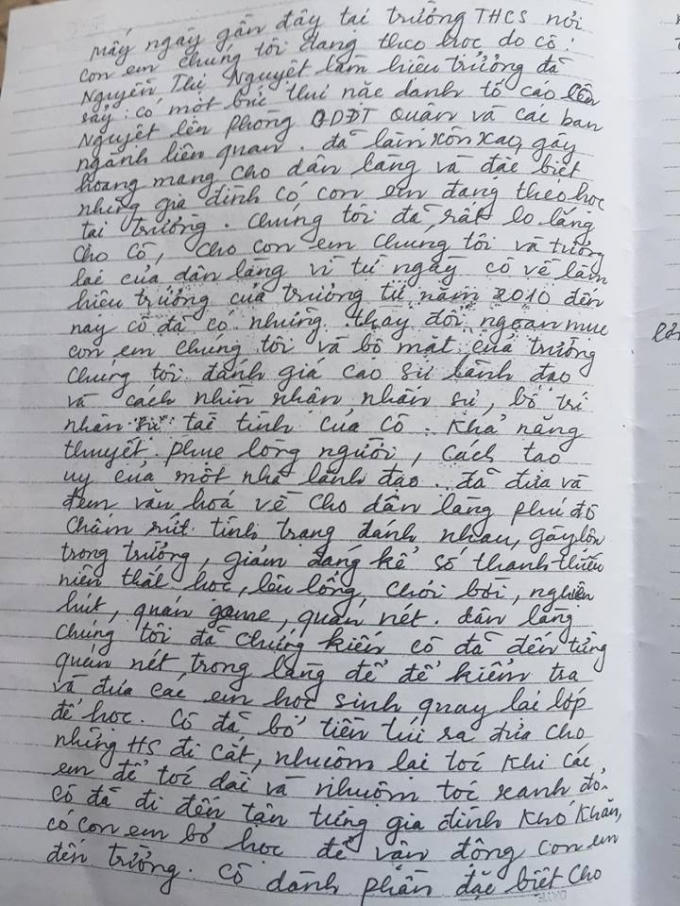 Mấy ngày gần đây tại trường THCS nơi
con em chúng tôi đang theo học do cô:
Nguyễn Thị Nguyệt làm hiệu trưởng đã
sảy: có một bức thư nặc danh tố cáo lên
Nguyệt lên phòng GDĐT Quận và các ban
ngành liên quan. đã làm xôn xao, gây
hoang mang cho dân làng và đặc biệt
những gia đình có con em đang theo học
tại trường. Chúng tôi đã rất lo lắng
cho cô, cho con em chúng tôi và tương
lai của dân làng vì từ ngày cô về làm
hiệu trưởng của trường từ năm 2010 đến
nay cô đã có những thay đổi ngoạn mục
con em chúng tôi và bộ mặt của trường
Chúng tôi đánh giá cao sự lãnh đạo
và cách nhìn nhận nhân sự, bố trí
nhân sự tài tình của cô. Khả năng
thuyết phục lòng người, cách tạo
uy của một nhà lãnh đạo. đã đưa và
đem văn hoá về cho dân làng phú đô
Chấm rứt tình trạng đánh nhau, gây lộn
trong trường, giảm đáng kể số thanh thiếu
niên thất học, lêu lổng, chơi bời, nghiện
hút, quán game, quán nét. dân làng
chúng tôi đã chứng kiến cô đã đến từng
quán nét trong làng để để kiểm tra
và đưa các em học sinh quay lại lớp
để học. Cô đã bỏ tiền túi ra đưa cho
những HS đi cắt, nhuộm lại tóc khi các
em để tóc dài và nhuộm tóc xanh đỏ.
cô đã đi đến tận từng gia đình khó khăn,
có con em bỏ học để vận động con em
đến trường. Cô dành phần đặc biệt cho